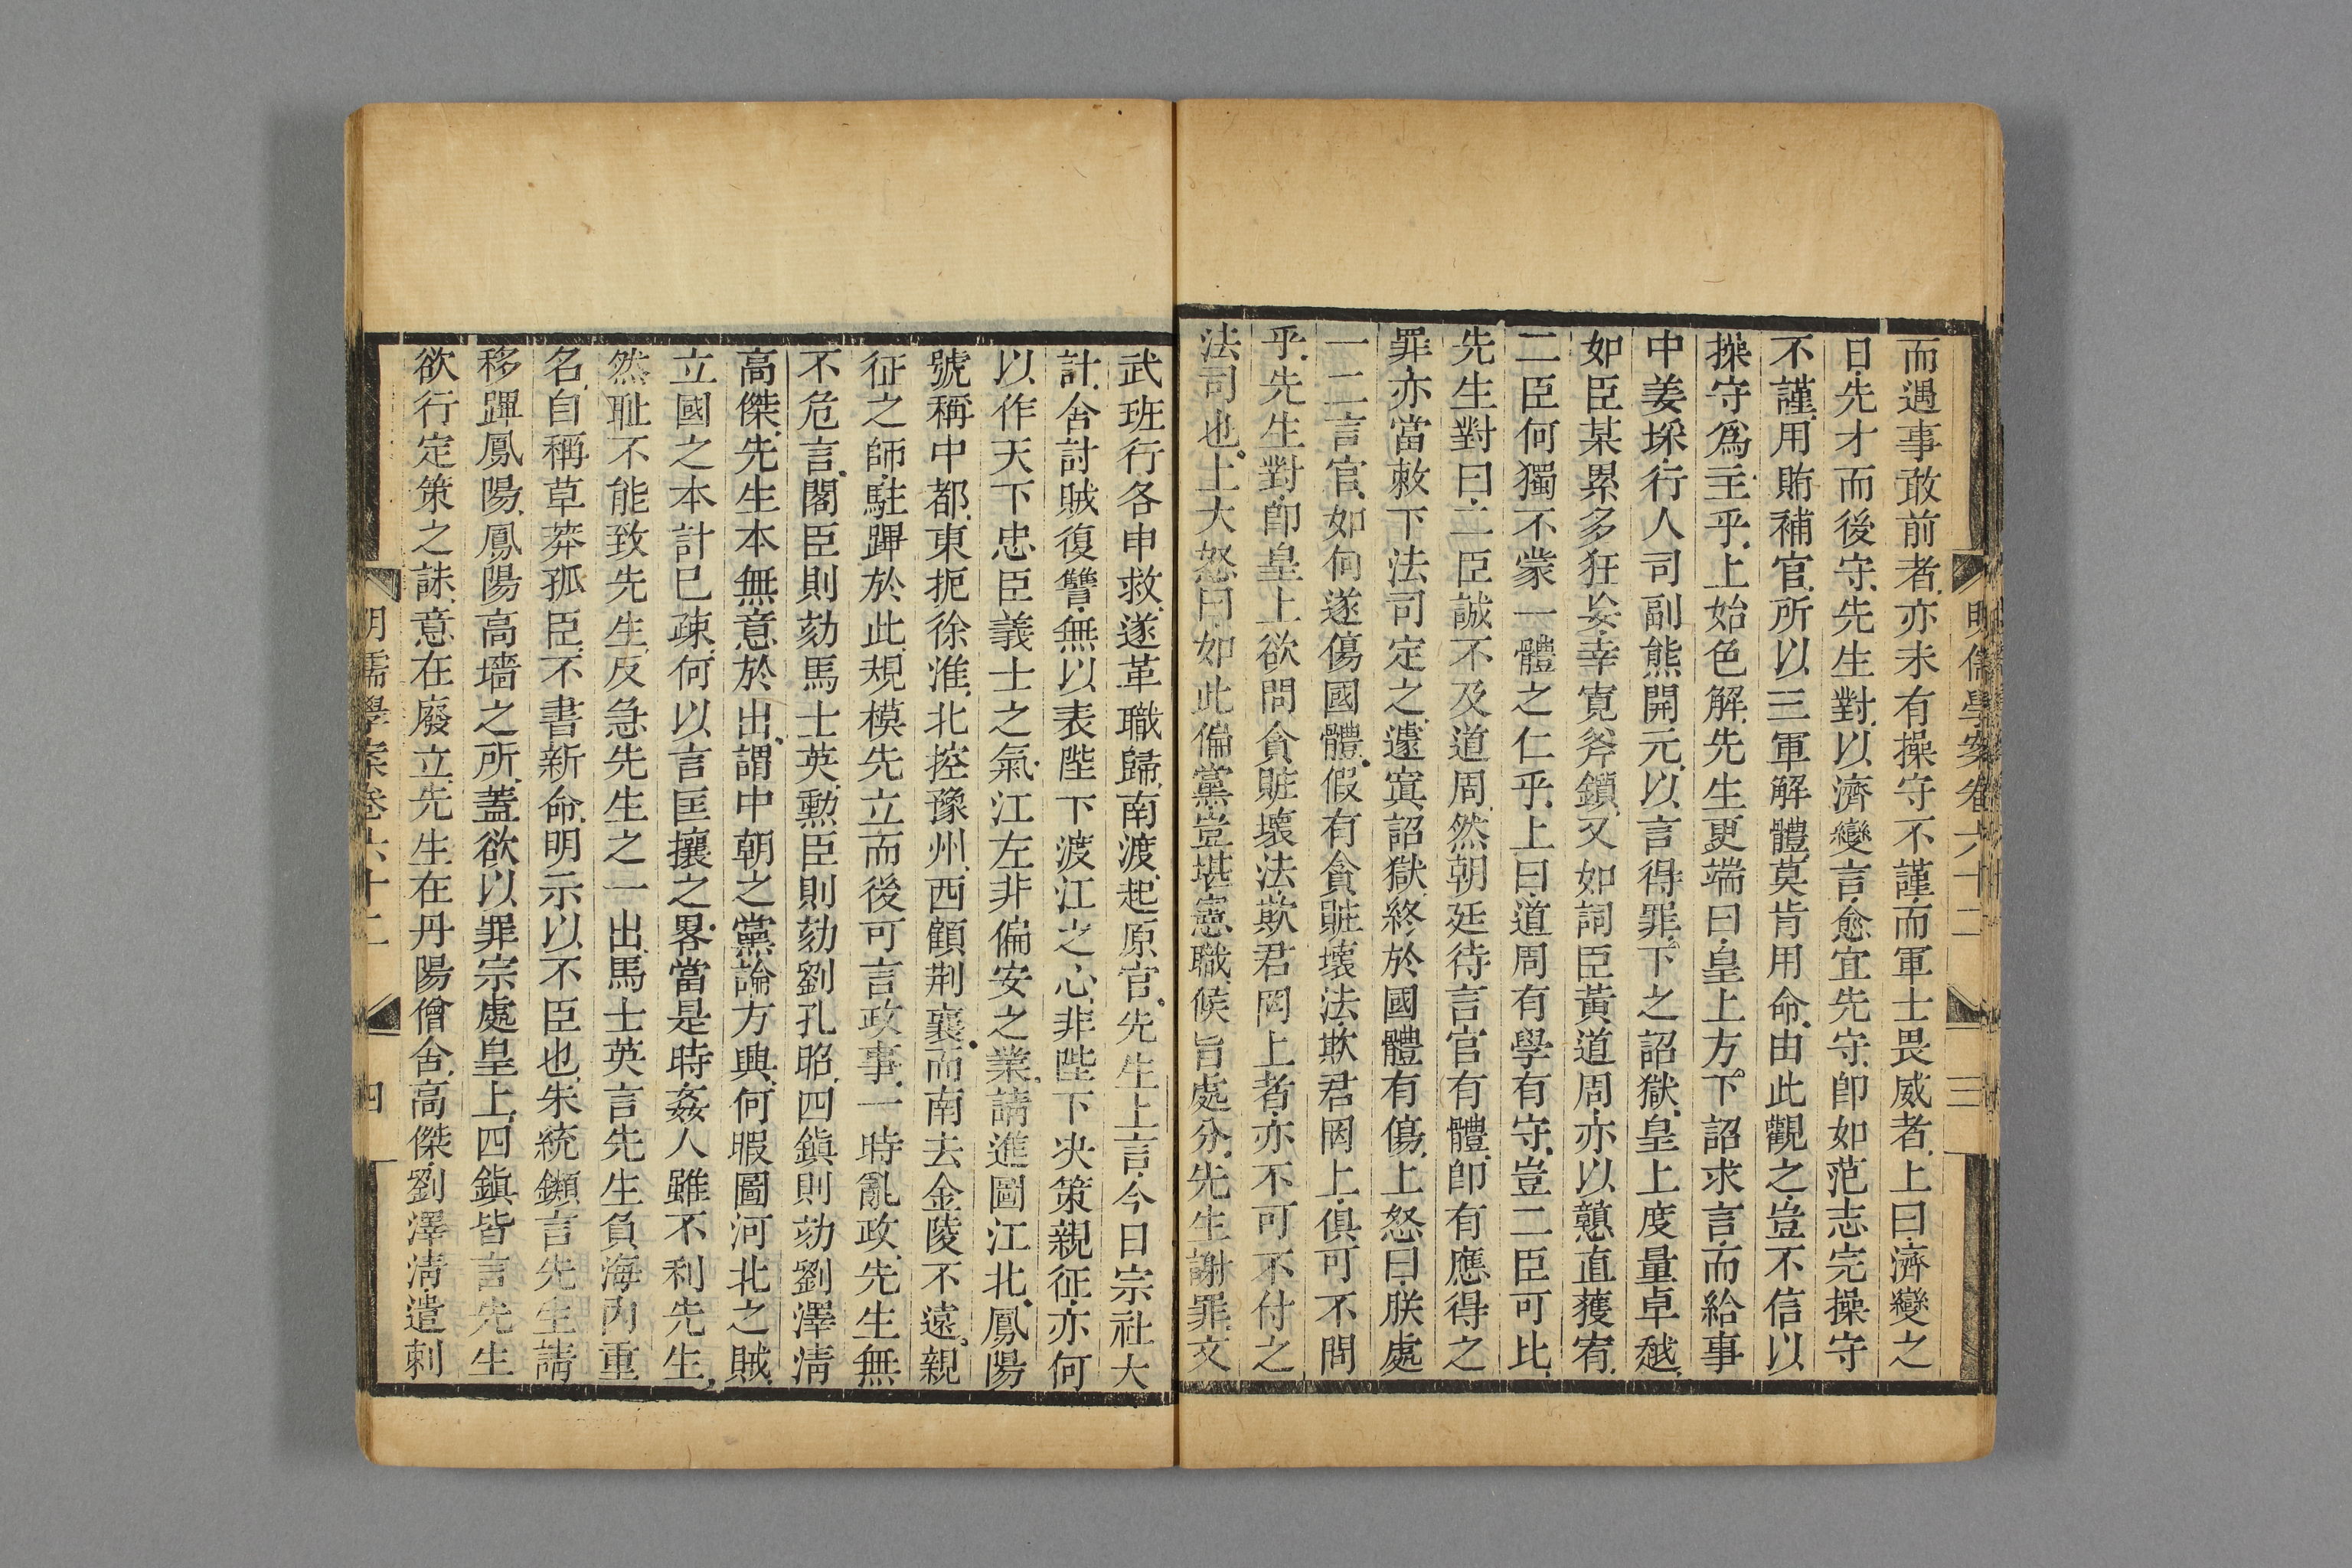 明儒學案卷六十二
三
而遇事敢前者亦未有操守不謹而軍士畏威者上曰濟變之
日先才而後守先生對以濟變言愈宜先守卽如范志完操守
不謹用賄補官所以三軍解體莫肯用命由此觀之豈不信以
操守爲主乎上始色解先生更端曰皇上方下詔求言而給事
中姜埰行人司副熊開元以言得罪下之詔獄皇上度量卓越
如臣某累多狂妄幸寛斧鑕又如詞臣黃道周亦以戇直獲宥
二臣何獨不蒙一體之仁乎上曰道周有學有守豈二臣可比
先生對曰二臣誠不及道周然朝廷待言官有體卽有應得之
罪亦當敕下法司定之遽寘詔獄終於國體有傷上怒曰朕處
一二言官如何遂傷國體假有貪賍壞法欺君罔上俱可不問
乎先生對卽皇上欲問貪賍壞法欺君罔上者亦不可不付之
法司也上大怒曰如此偏黨豈堪憲職候旨處分先生謝罪文
武班行各申救遂革職歸南渡起原官先生上言今日宗社大
計舍討賊復讐無以表陛下渡江之心非陛下决策親征亦何
以作天下忠臣義士之氣江左非偏安之業請進圖江北鳳陽
號稱中都東扼徐淮北控豫州西顧荆襄而南去金陵不遠親
征之師駐蹕於此規模先立而後可言政事一時亂政先生無
不危言閣臣則劾馬士英勲臣則劾劉孔昭四鎭則劾劉澤淸
高傑先生本無意於出謂中朝之黨論方興何暇圖河北之賊
立國之本計已疎何以言匡攘之畧當是時姦人雖不利先生
然耻不能致先生反急先生之一出馬士英言先生負海內重
名自稱草莽孤臣不書新命明示以不臣也朱統鑚言先生請
移蹕鳳陽鳳陽高墻之所蓋欲以罪宗處皇上四鎭皆言先生
欲行定策之誅意在廢立先生在丹陽僧舍高傑劉澤淸遣刺
明儒學案卷六十二
四